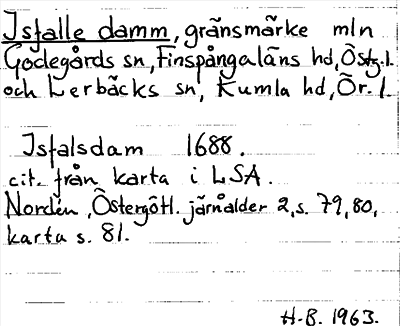 Isfalle damm, gränsmärke mln
Godegårds sn, Finspångaläns hd, Östg. l.
och Lerbäcks sn, Kumla hd, Ör. l.
Isfalsdam 1688.
cit. från karta i LSA.
Nordén, Östergötl. järnålder 2, s. 79, 80,
karta s. 81.
H-B. 1963.